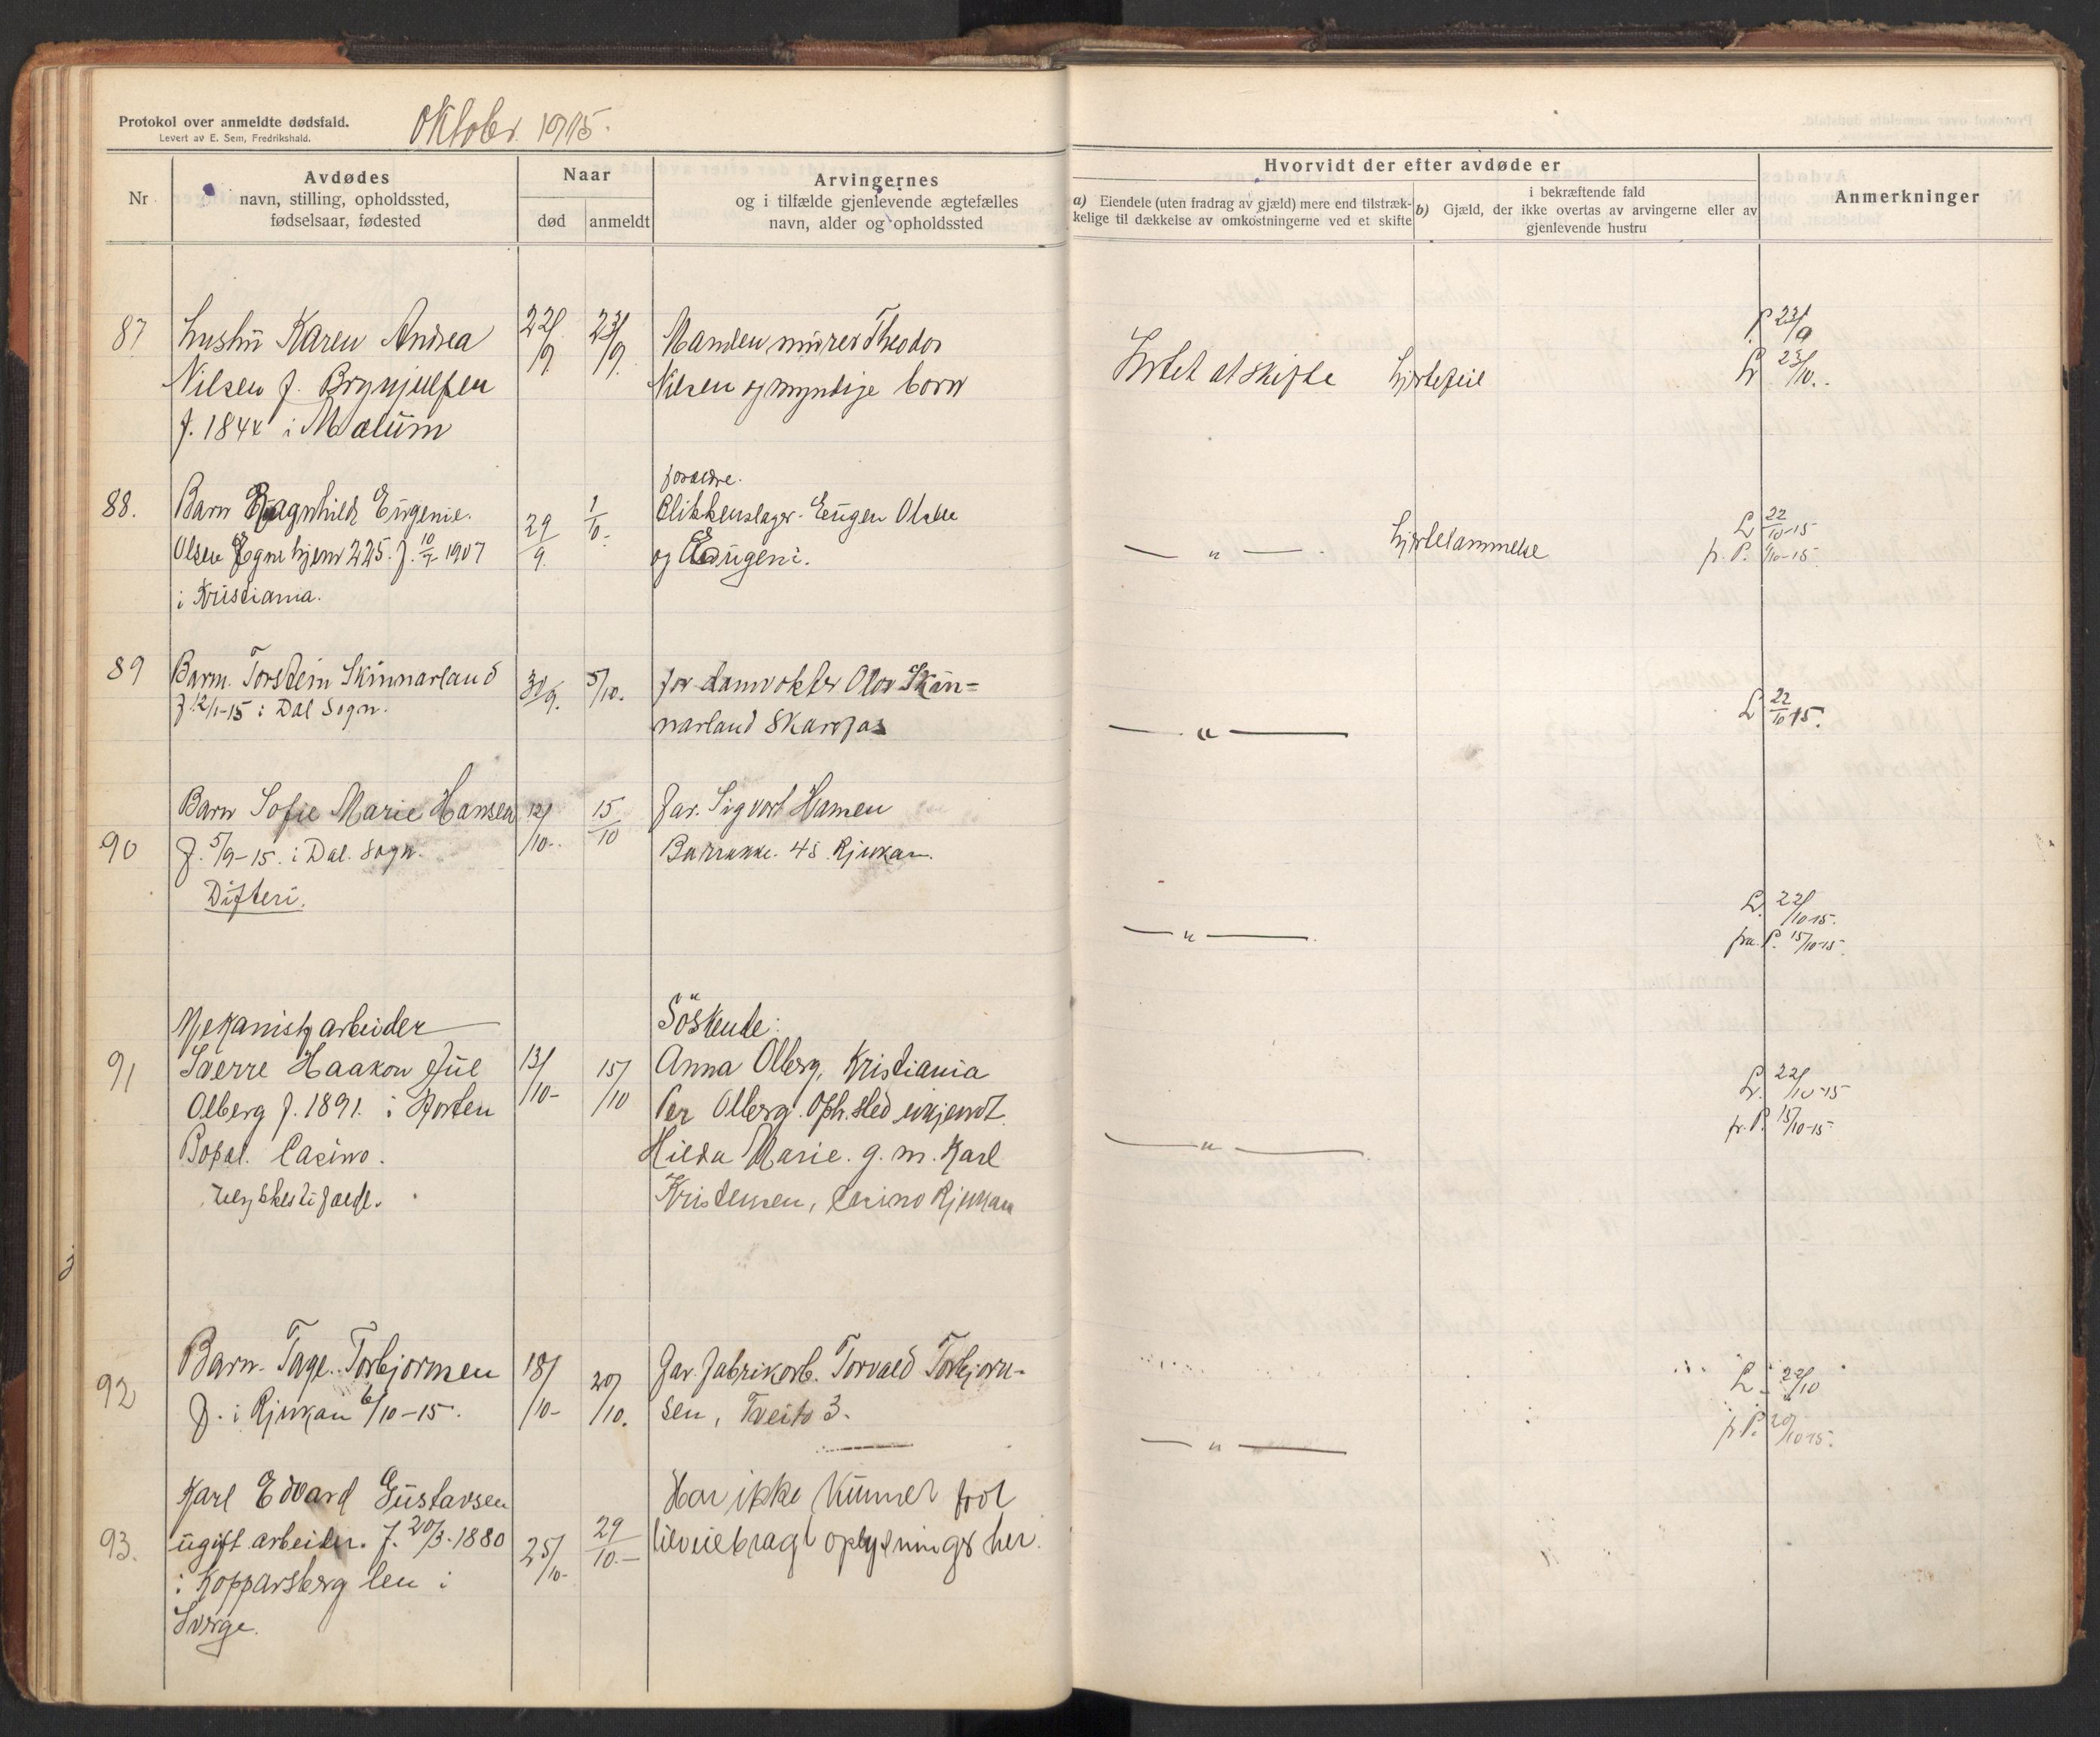 Protokol over anmeldte dødsfald.
Levert av E. Sem, Fredrikshald.
Oktober 1915.
Nr
Avdødes
navn, stilling, opholdssted,
fødselsaar, fødested
Naar
død
anmeldt
Arvingernes
og i tilfælde gjenlevende ægtefælles
navn, alder og opholdssted
Hvorvidt der efter avdøde er
a) Eiendele (uten fradrag av gjæld) mere end tilstræk-
kelige til dækkelse av omkostningerne ved et skifte
i bekræftende fald
b) Gjæld, der ikke overtas av arvingerne eller av
gjenlevende hustru
Anmerkninger
87
hustru Karen Andrea
Nilsen f. Brynjulfsen
f. 1844 i Mælum
22/9.
23/9.
Manden murer Theodor
Nilsen og myndige børn
Intet at skifte
hjertefeil
P 23/9
L 23/10.
88.
Barn Ragnhild Eugenie.
Olsen Egne hjem 225. f. 10/7 1907
i Kristiania.
29/9.
1/10.
forældre.
Blikkenslager Eugen Olsen
og Eugeni.
— " —
hjertelammelse
L 22/10-15
fr. P. 1/10-15
89
Barn Torstein Skinnarland
f 12/1-15 i Dal Sogn.
30/9.
5/10.
far damvokter Olav Skin=
narland Skarsfos
— " —
L 22/10 15.
90
Barn Sofie Marie Hansen
f. 5/9-15. i Dal. Sogn.
Difteri.
12/10.
15/10
Far. Sigvart Hansen
Barrakke. 45 Rjukan.
— " —
L. 22/10 15.
fra. P. 15/10-15.
91
Mekanisk arbeider
Sverre Haakon Juel
Olberg f. 1891. i Horten
Bopæl. Casino.
Ulykkestilfælde.
13/10-
15/10
Söskende:
Anna Olberg, Kristiania
Per Olberg. Oph.sted ukjendt.
Hilda Marie. g. m. Karl
Kristensen, Casino Rjukan
— " —
L. 22/10-15
fr. P. 15/10-15
92
Barn. Tage. Torbjørnsen
f. i Rjukan 6/10-15.
18/10-
20/10.
Far fabrikarb. Torvald Torbjørn-
sen, Tveito 3.
— " —
L. 22/10
fr P. 20/10 15.
93.
Karl Edvard Gustavsen
ugift arbeider. f. 20/3-1880
i Kopparsberg len i
Sverge.
25/10-
29/10.-
Har ikke kunnet faat
tilveiebragt oplysninger her.